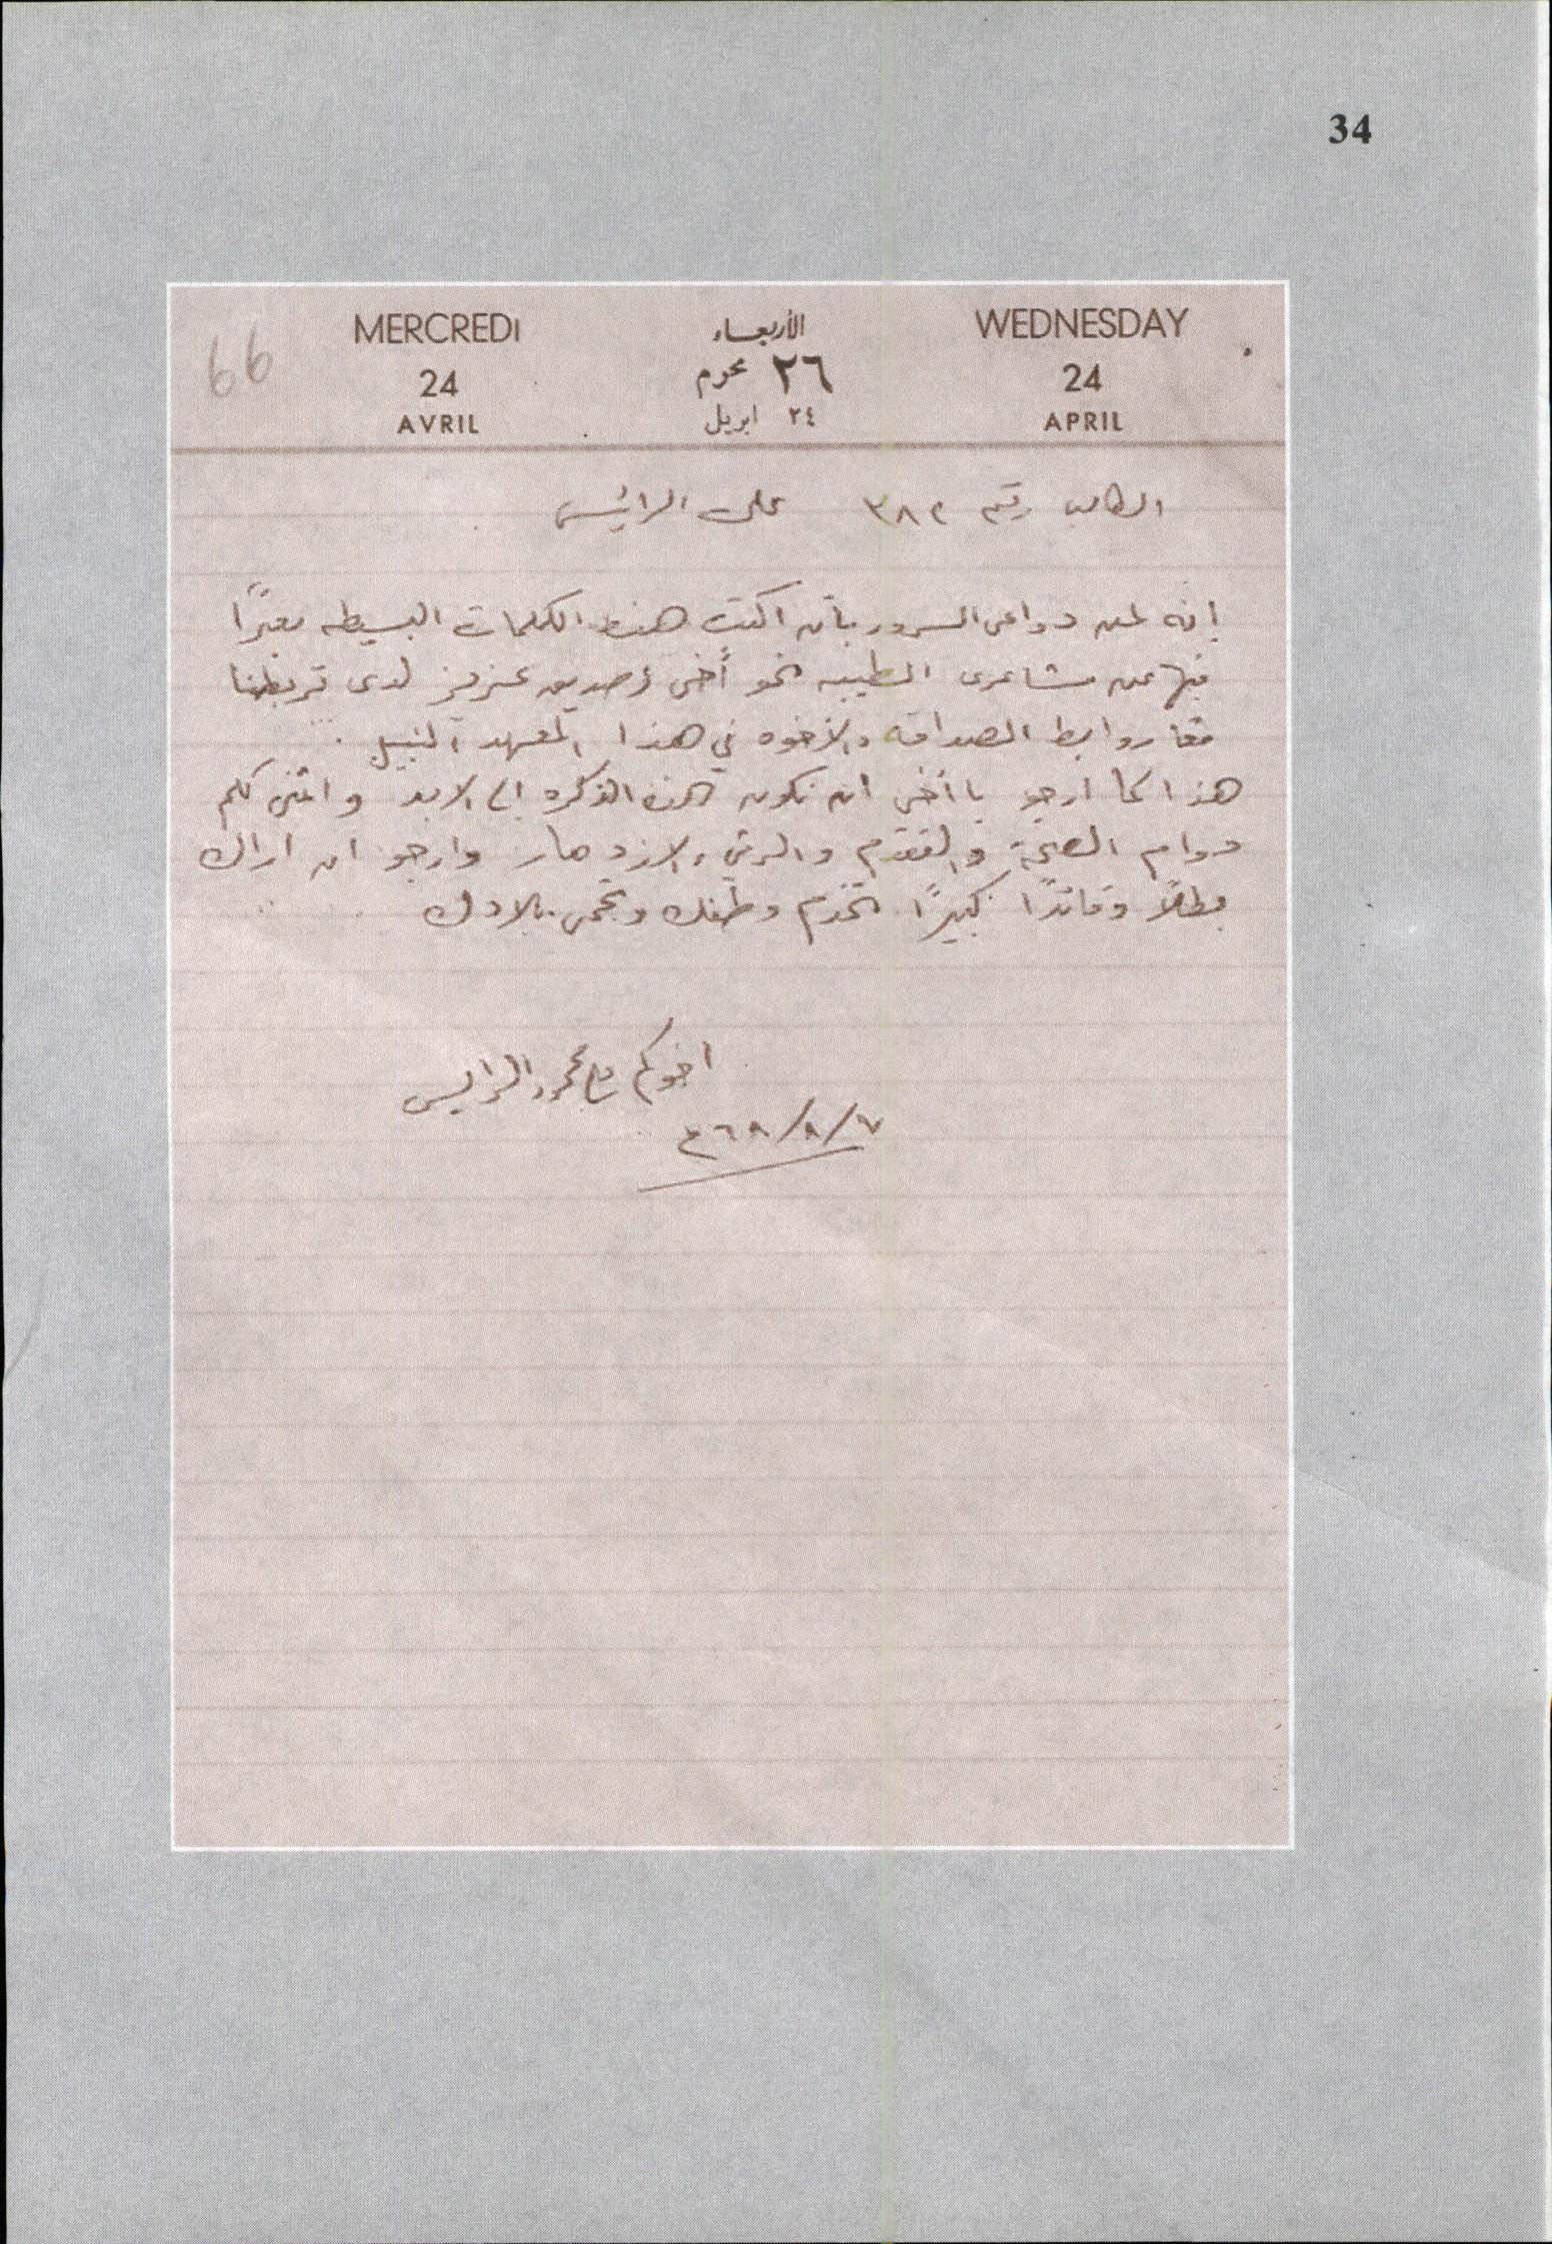 34
66
MERCREDI الأربعاء WEDNESDAY
24 ٢٦ محرم 24
AVRIL ٢٤ ابريل APRIL
الطالب رقم ٣٨٢ على الرائيس
إنه لمن دواعى السرور بأن اكتب هذه الكلمات البسيطه معبرًا
فيها عن مشاعرى الطيبه نحو أخى وصديق عزيز لدى تربطنا
معًا روابط الصداقه والأخوه في هذا المعهد النبيل .
هذا كما ارجو يا أخى ان تكون هذه الذكره الى الابد واتمنى لكم
دوام الصحة والتقدم والرقي والازدهار وارجو ان اراك
بطلاً وقائدًا كبيرًا تخدم وطنك وتحمى بلادك
اخوكم الرايس
٧/٨/٦٨م